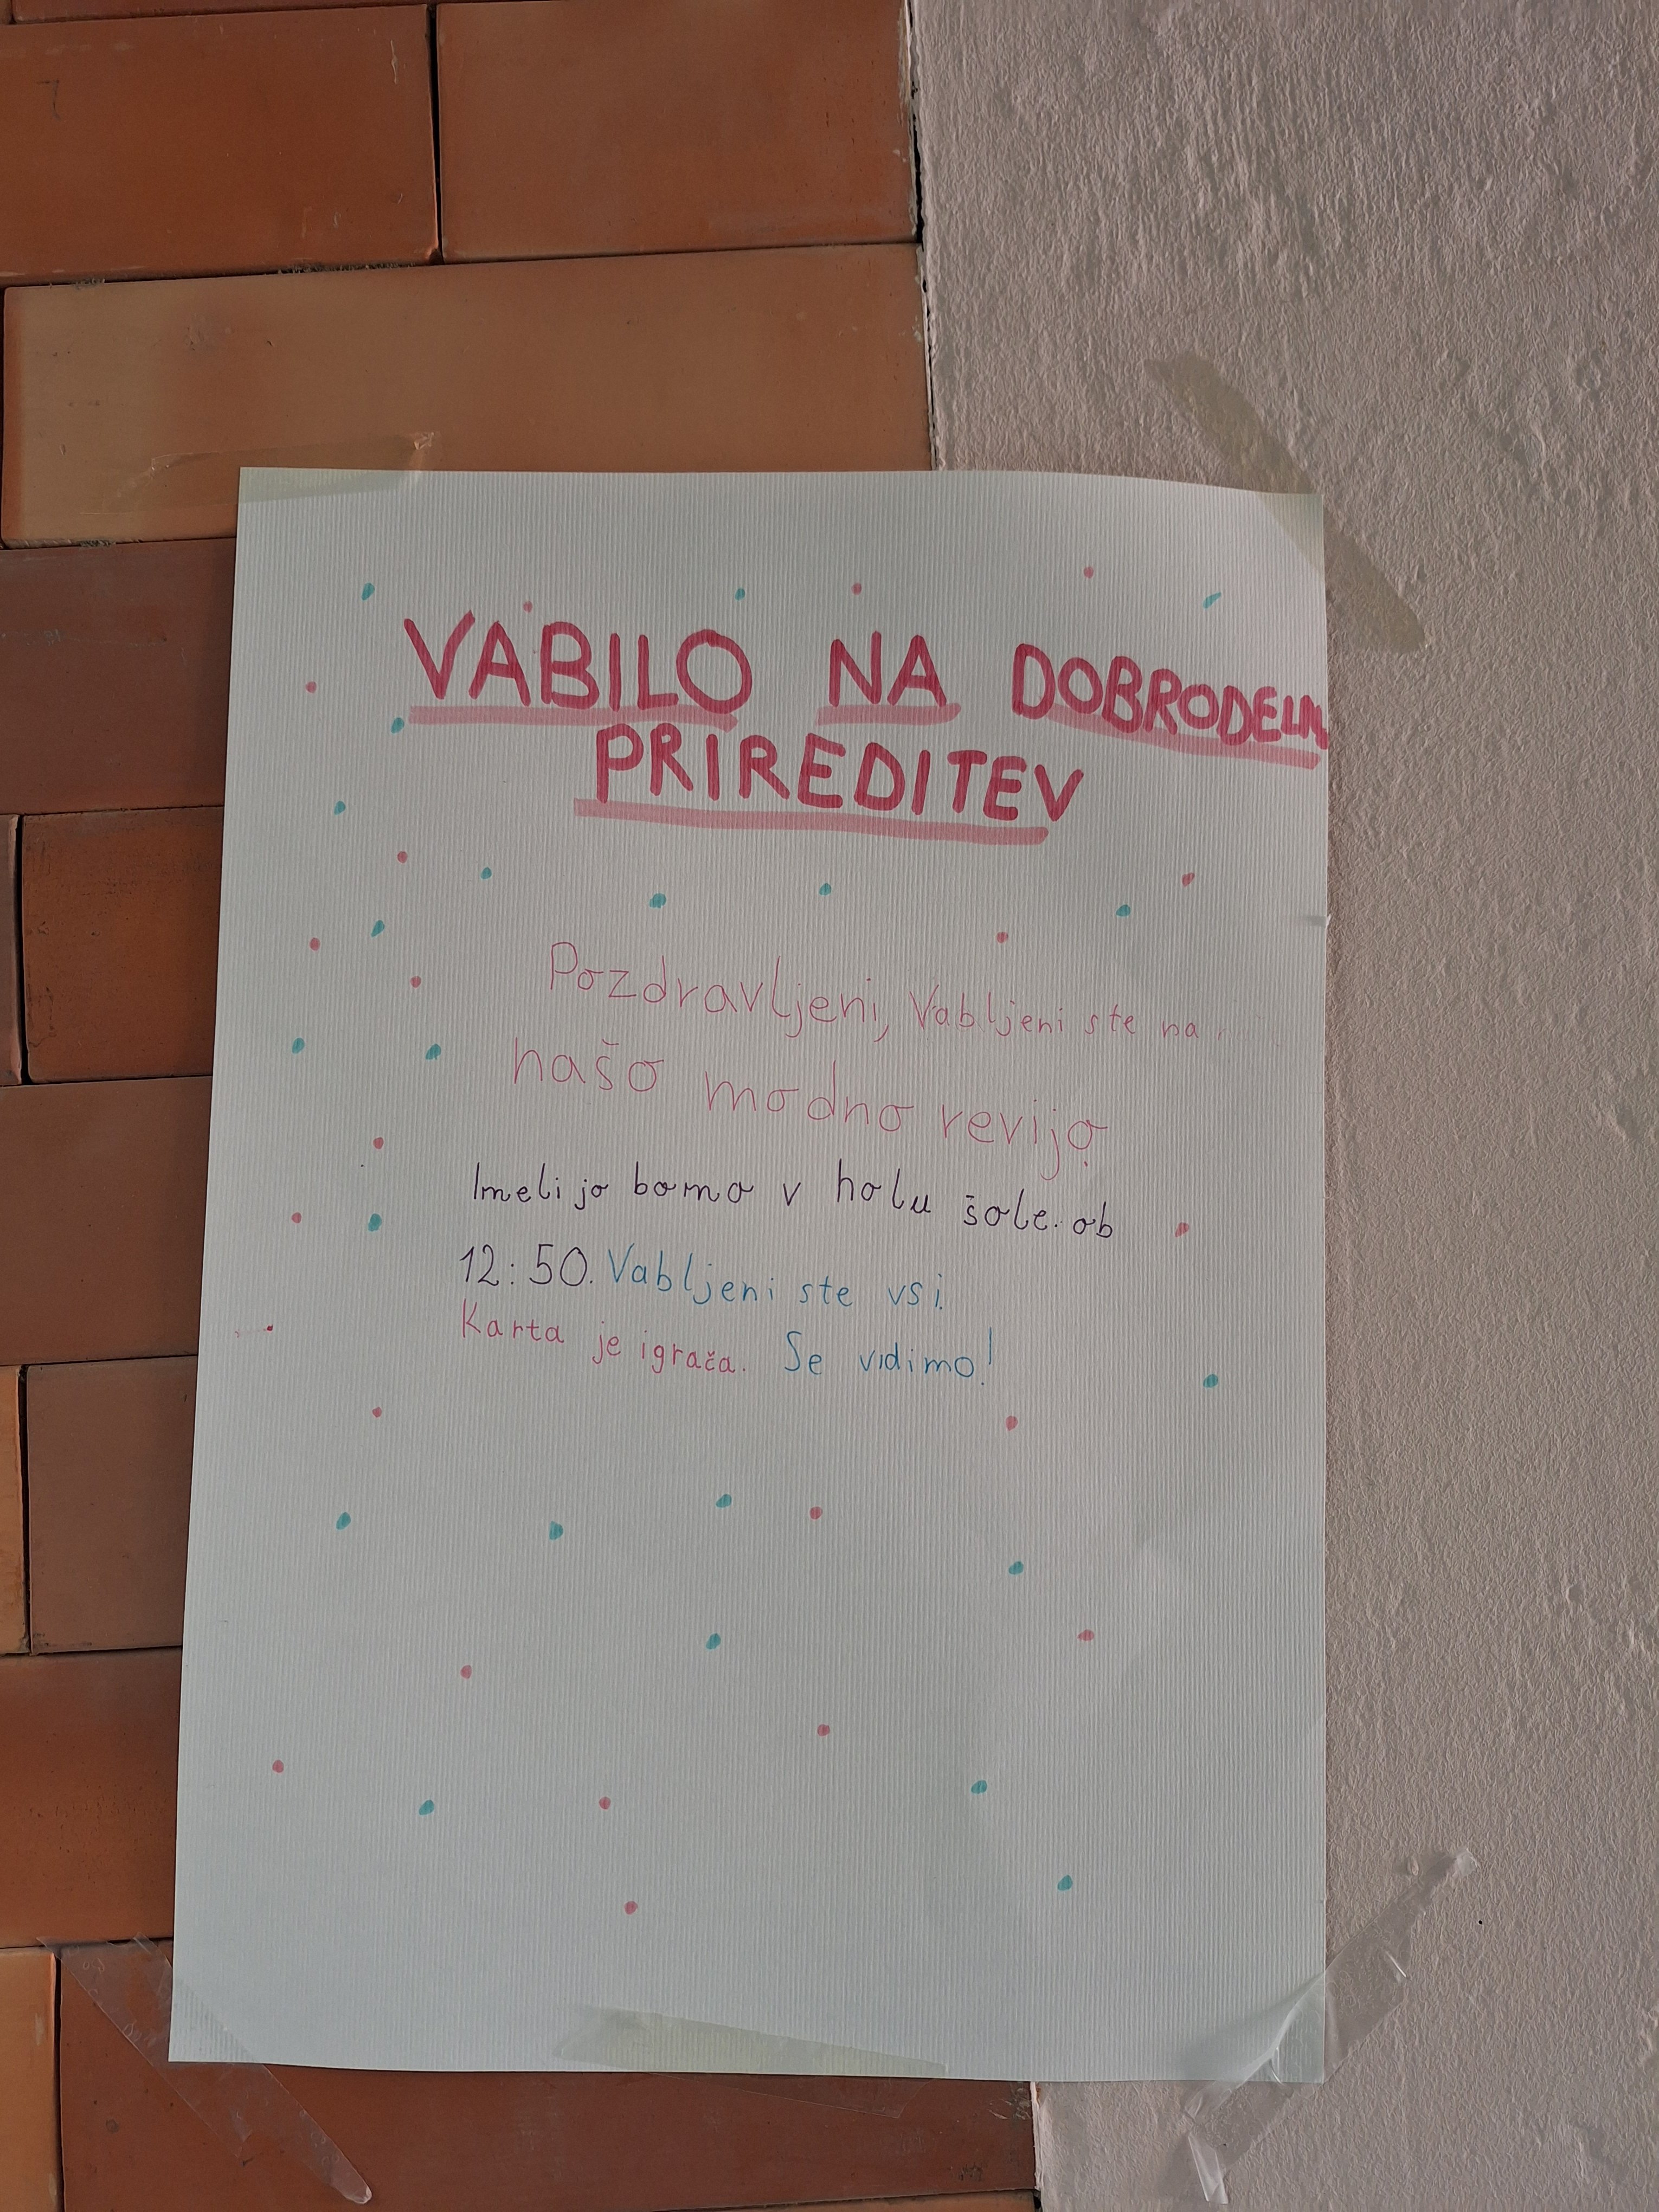 VABILO NA DOBRODELN
PRIREDITEV
Pozdravljeni, Vabljeni ste na
našo modno revijo
Imeli jo bomo v holu šole. ob
12:50. Vabljeni ste vsi.
Karta je igrača. Se vidimo!